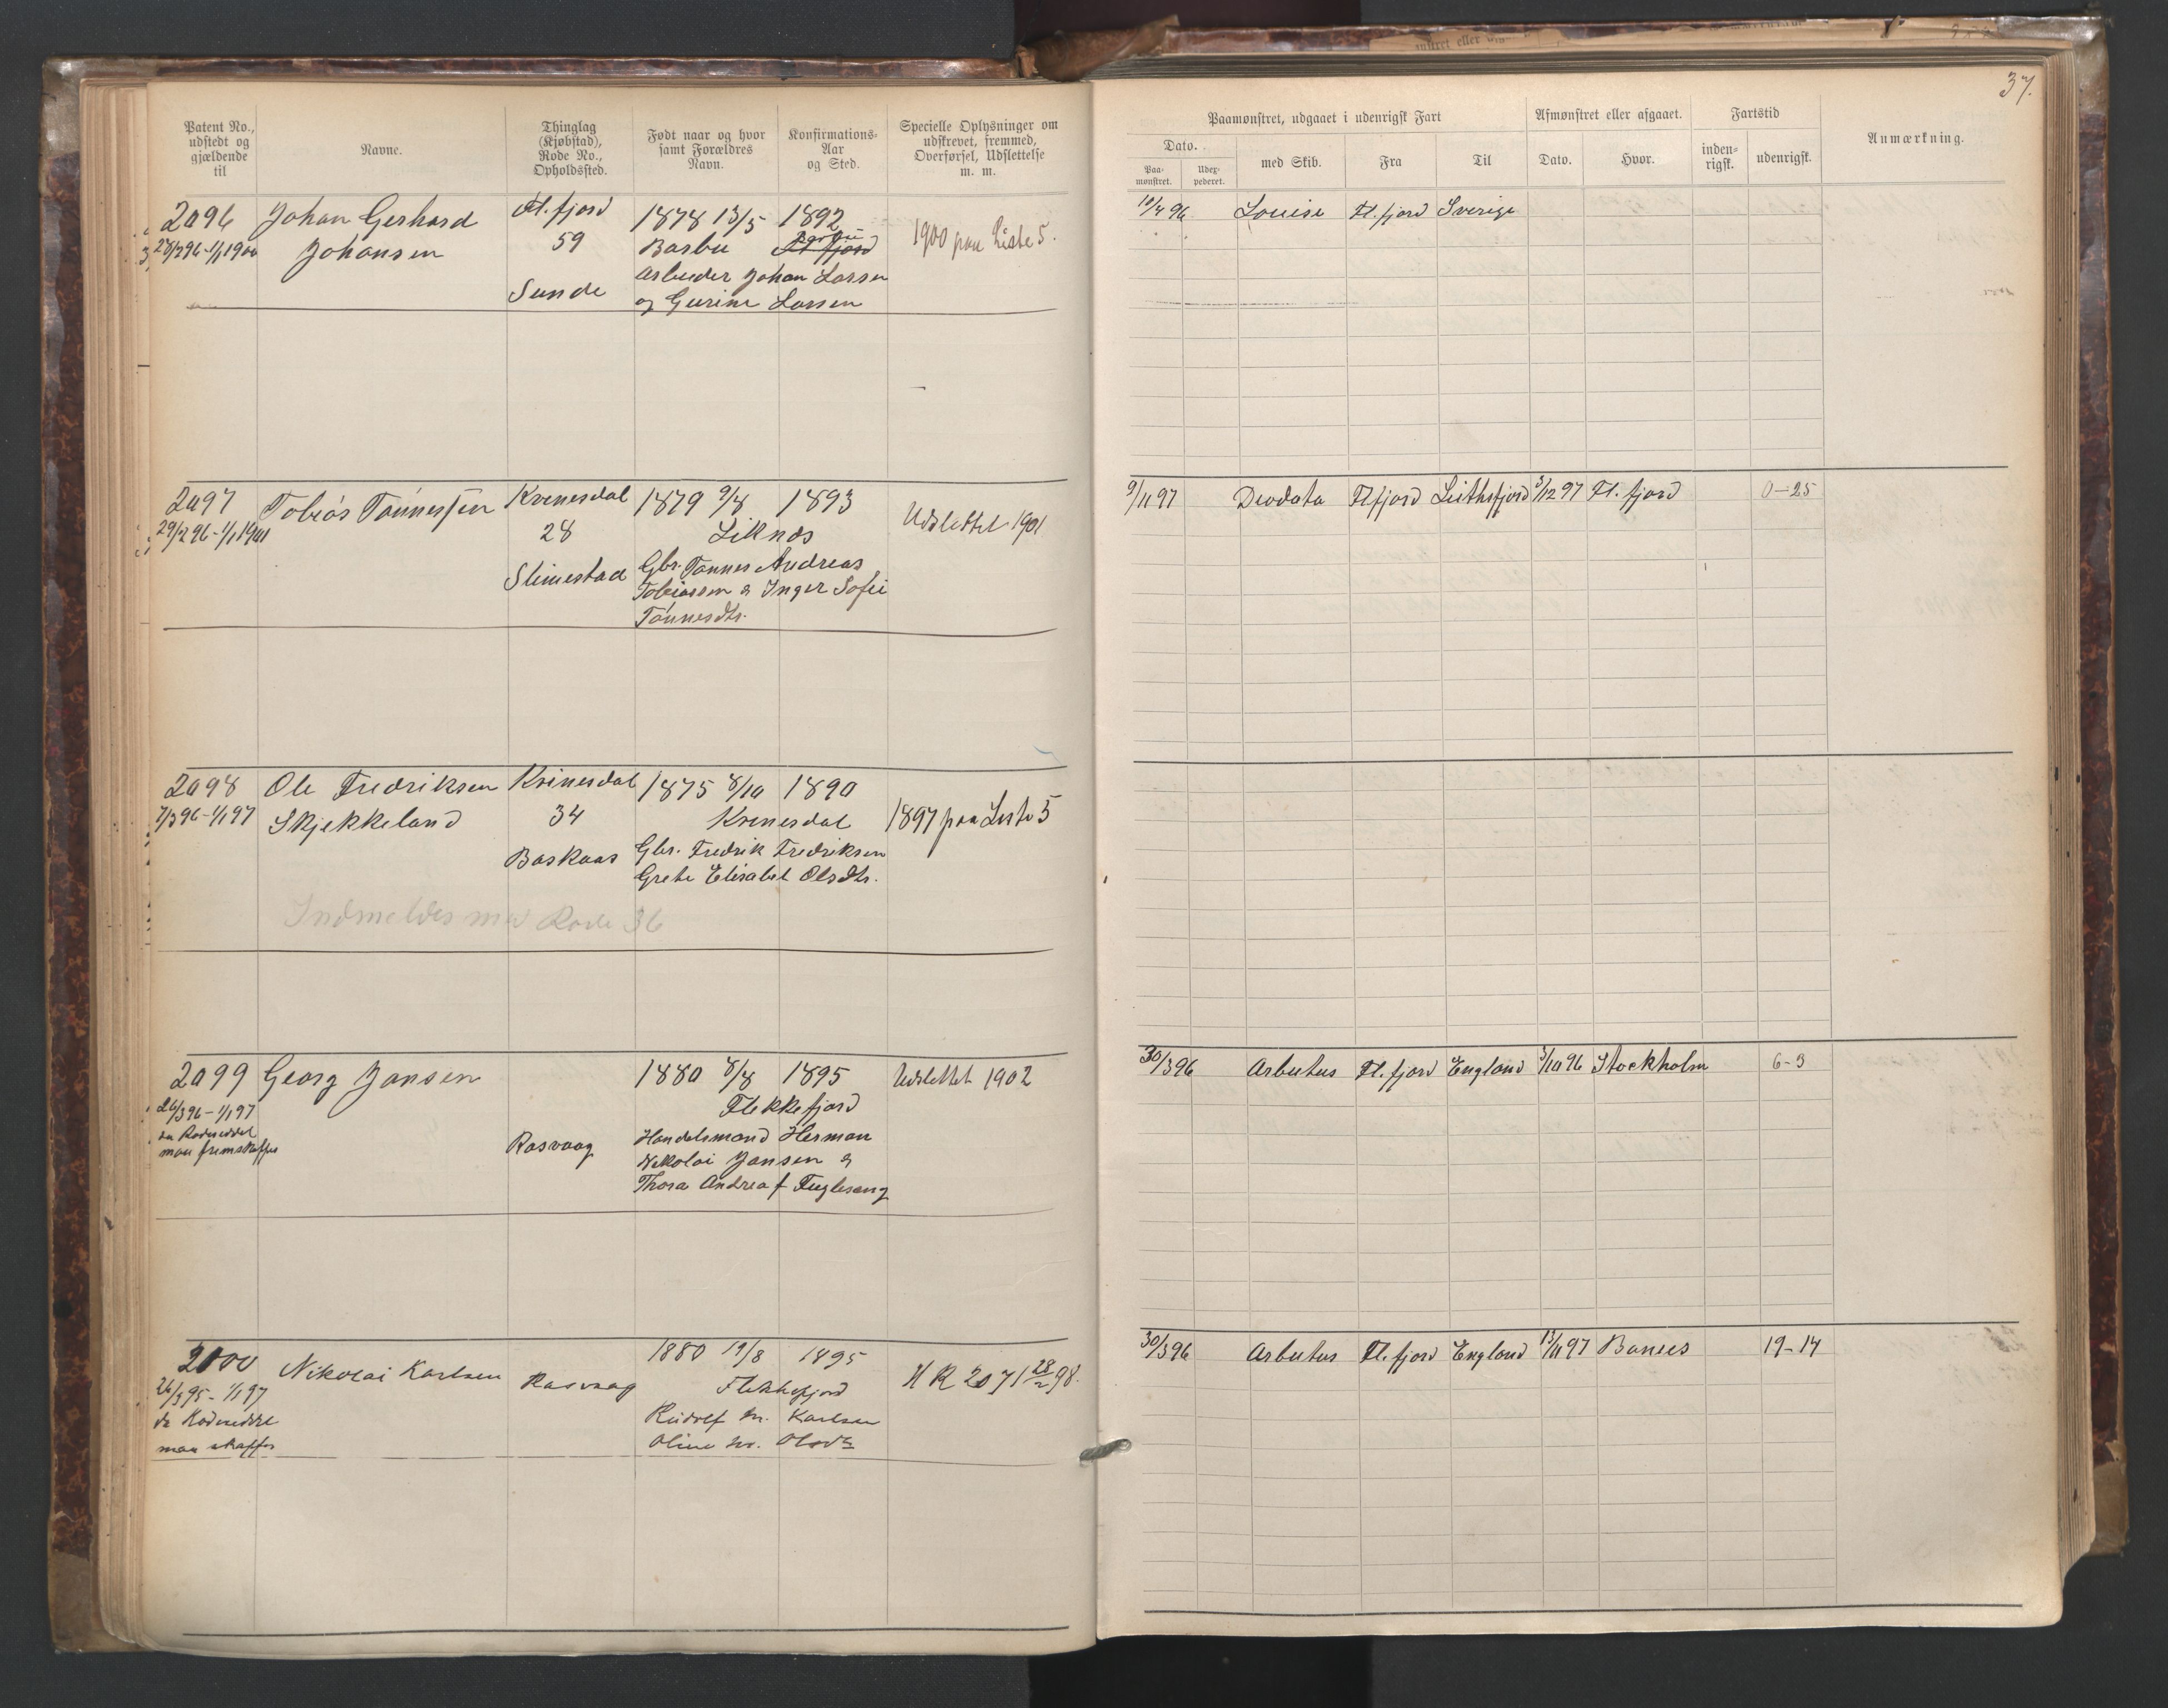 37.
Patent No., udstedt og gjældende til
Navne.
Thinglag (Kjøbstad), Rode No., Opholdssted.
Født naar og hvor samt Forældres Navn.
Konfirmations-Aar og Sted.
Specielle Oplysninger om udskrevet, fremmed, Overførsel, Udslettelse m. m.
Paamønstret, udgaaet i udenrigsk Fart
Afmønstret eller afgaaet.
Fartstid
Anmærkning.
Dato.
Paa-mønstret.
Udex-pederet.
med Skib.
Fra
Til
Dato.
Hvor.
inden-rigsk.
udenrigsk.
2096 Johan Gerhard Fl.fjord 1878 13/5 1892
28/2 96 - 1/1 1900 Johansen 59 Barbu Fl.fjord 1900 paa Liste 5.
Arbeider Johan Larsen
Sunde og Gurine Larsen
10/4 96 Louise Fl.fjord Sverige
2097 Tobias Tønnessen Kvinesdal 1879 9/8 1893
29/2 96 - 1/1 1901 28 Liknes Udslettet 1901
Slimestad Gbr. Tønnes Andreas
Tobiassen & Inger Sofie
Tønnesdtr.
9/11 97 Deodata Fl.fjord Leithsfjord 3/12 97 Fl.fjord 0-25
2098 Ole Fredriksen Kvinesdal 1875 8/10 1890
7/3 96 - 1/1 97 Skjekkeland 34 Kvinesdal 1897 paa Liste 5
Baskaas Gbr. Fredrik Fredriksen
Grete Elisabet Olsdtr.
Indmeldes med Rode 36
2099 Georg Jansen 1880 8/8 1895 Udslettet 1902
26/3 96 - 1/1 97 Flekkefjord
da Rodeseddel
maa fremskaffes Rasvaag Handelsmand Herman
Nikolai Jansen &
Thora Andrea f Fuglesang
30/3 96 Arbutus Fl.fjord England 3/10 96 Stockholm 6-3
2000 Nikolai Karlsen Rasvaag 1880 19/8 1895
26/3 95 - 1/1 97 Flekkefjord H R 2071 28/2 98.
da Rodeseddel Rudolf M. Karlsen
maa skaffes Oline M. Olsdtr
30/3 96 Arbutus Fl.fjord England 13/11 97 Barnes 19-14